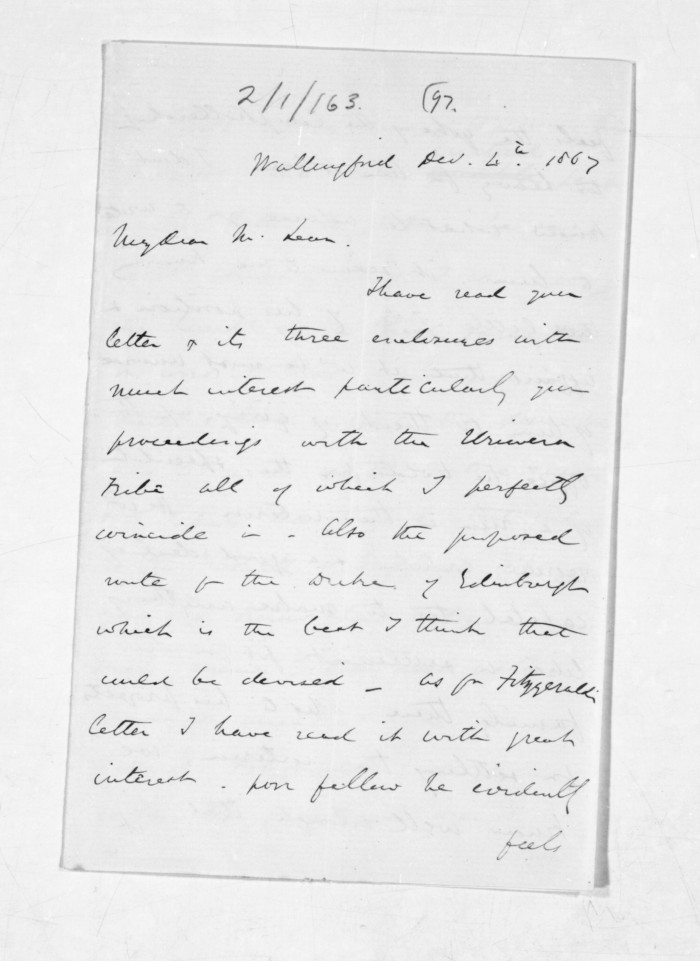 2/1/163. (97.
Wallingford Dec. 4th 1867
My dear Mr. Lean.
I have read your
letter & its three enclosures with
much interest particularly your
proceedings with the Uriwera
tribe all of which I perfectly
coincide in - Also the proposed
route for the Duke of Edinburgh
which is the best I think that
could be devised - as for Fitzgerald's
letter I have read it with great
interest - poor fellow he evidently
feels